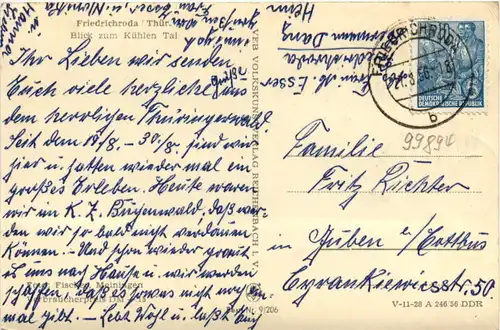 Friedrichroda / Thür.
Blick zum Kühlen Tal
Ihr Lieben wir senden
Euch viele herzliche Grüße aus
dem herrlichen Thüringerwald
Seit dem 19/8. - 30/8. sind wir
hier u. hatten wieder mal ein
großes Erleben. Heute waren
wir im K. Z. Bugenwald, daß wer-
den wir so bald nicht verdauen
können. - Und schon wieder graut
es uns nach Hause u. wir werden
schaffen, daß es sowas nicht mehr
mal gibt. - Lebt Wohl u. laßt auch
Foto: Fischer, Meiningen
Verbraucherpreis DM
VEB VOLKSKUNSTVERLAG REICHENBACH I. V.
Best.-Nr. 9/206
Hermann Danz
FRIEDRICHRODA
21.8.56.
b
DEUTSCHE
DEMOKRATISCHE REPUBLIK
Familie
Fritz Richter
in Guben b/ Cottbus
Cyrankiewiczstr. 50
V-11-28 A 246 56 DDR